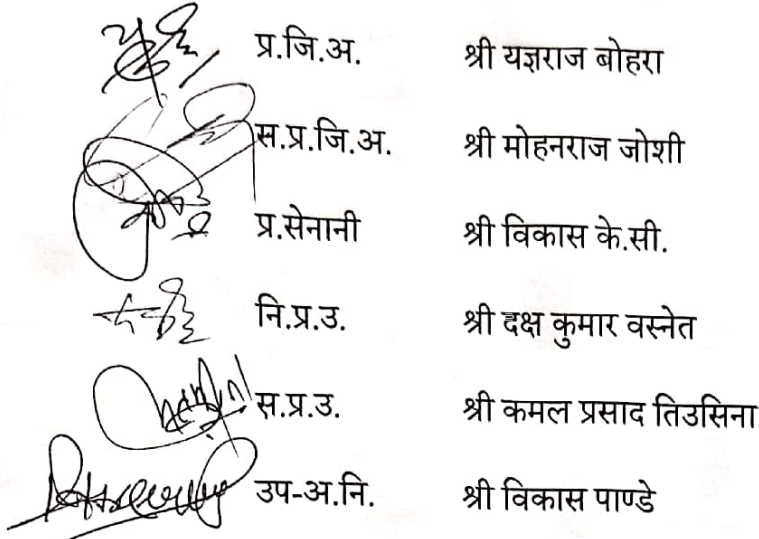 प्र.जि.अ. श्री यज्ञराज बोहरा
स.प्र.जि.अ. श्री मोहनराज जोशी
प्र.सेनानी श्री विकास के.सी.
नि.प्र.उ. श्री दक्ष कुमार वस्नेत
स.प्र.उ. श्री कमल प्रसाद तिउसिना
उप-अ.नि. श्री विकास पाण्डे